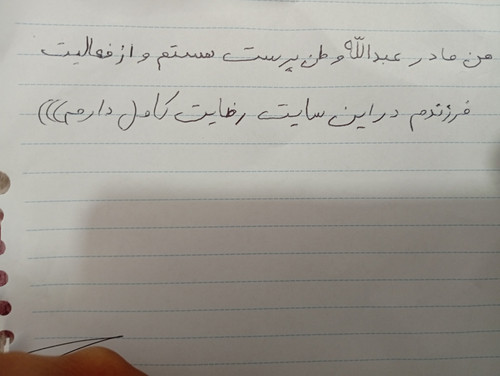 من مادر عبدالله وطن پرست هستم و از فعالیت
فرزندم در این سایت رضایت کامل دارم)))